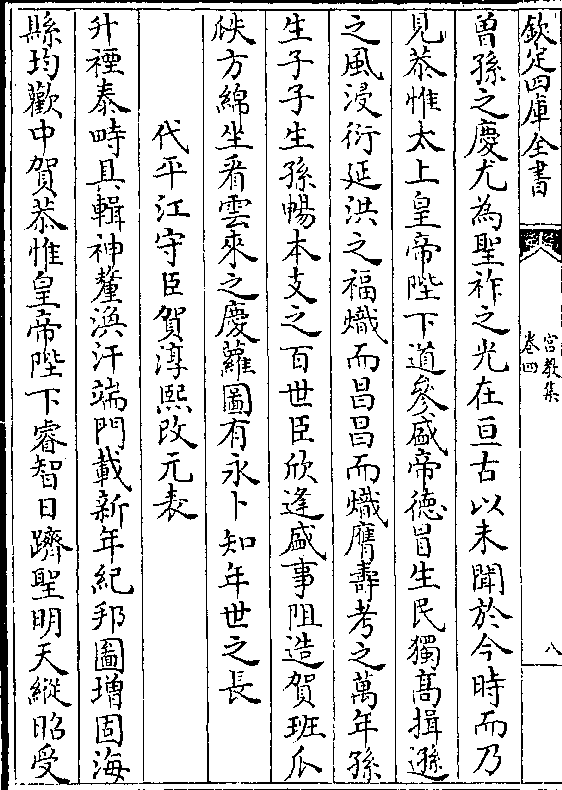 欽定四庫全書
宫教集
卷四
八
曽孫之慶尤為聖祚之光在亘古以未聞於今時而乃
見恭惟太上皇帝陛下道參盛帝德冒生民獨髙揖遜
之風浸衍延洪之福熾而昌昌而熾膺壽考之萬年孫
生子子生孫暢本支之百世臣欣逢盛事阻造賀班瓜
瓞方綿坐看雲來之慶蘿圖有永卜知年世之長
代平江守臣賀淳熙改元表
升禋泰畤具輯神釐渙汗端門載新年紀邦圖增固海
縣均歡中賀恭惟皇帝陛下睿智日躋聖明天縱昭受